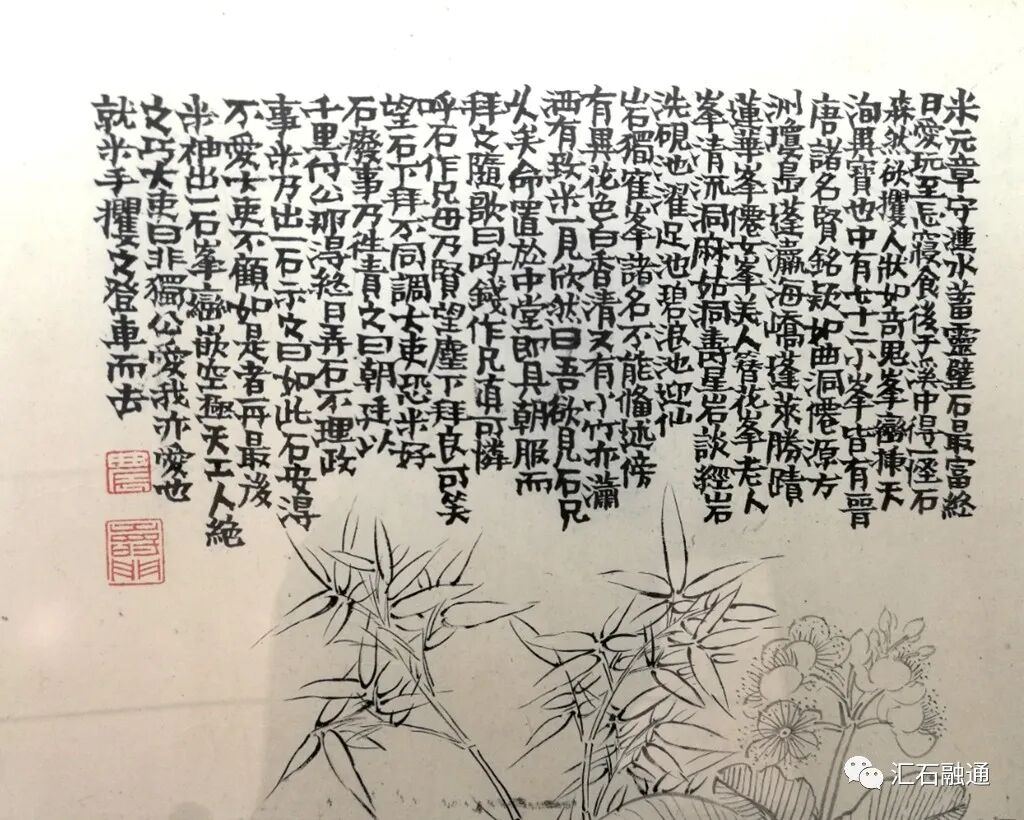 米元章守漣水蓄靈壁石最富終
日愛玩至忘寢食後于溪中得一怪石
森然欲攫人狀如奇鬼峯巒插天
洵異寶也中有七十二小峯皆有晉
唐諸名賢銘欵如曲洞僊源方
洲瓊島蓬瀛海嶠蓬萊勝蹟
蓮華峯僊女峯美人簪花峯老人
峯清流洞麻姑洞壽星岩談經岩
洗硯池濯足池碧浪池迎仙
岩獨窠峯諸名不能備述傍
有異花色白香清又有小竹亦瀟
洒有致米一見欣然曰吾欲見石兄
久矣命置於中堂即具朝服而
拜之隨歌曰呼錢作兄真可憐
呼石作兄毋乃賢望塵下拜良可笑
望石下拜不同調大吏恐米好
石廢事乃往責之曰朝廷以
千里付公那得終日弄石不理政
事米乃出一石示之曰如此石安得
不愛大吏不顧如是者再最後
米袖出一石峯巒嵌空極天工人絶
之巧大吏曰非獨公愛我亦愛也
就米手攫之登車而去
農
汇石融通